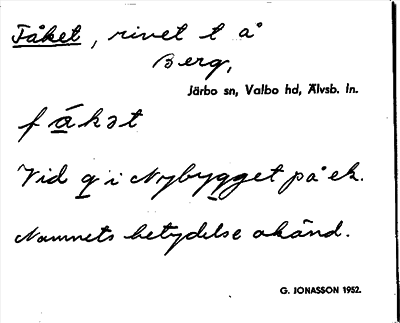 Fåket, rivet t å
Berg,
Järbo sn, Valbo hd, Älvsb. ln.
fåkət
Vid g i Nybygget på ek.
Namnets betydelse okänd.
G. JONASSON 1952.